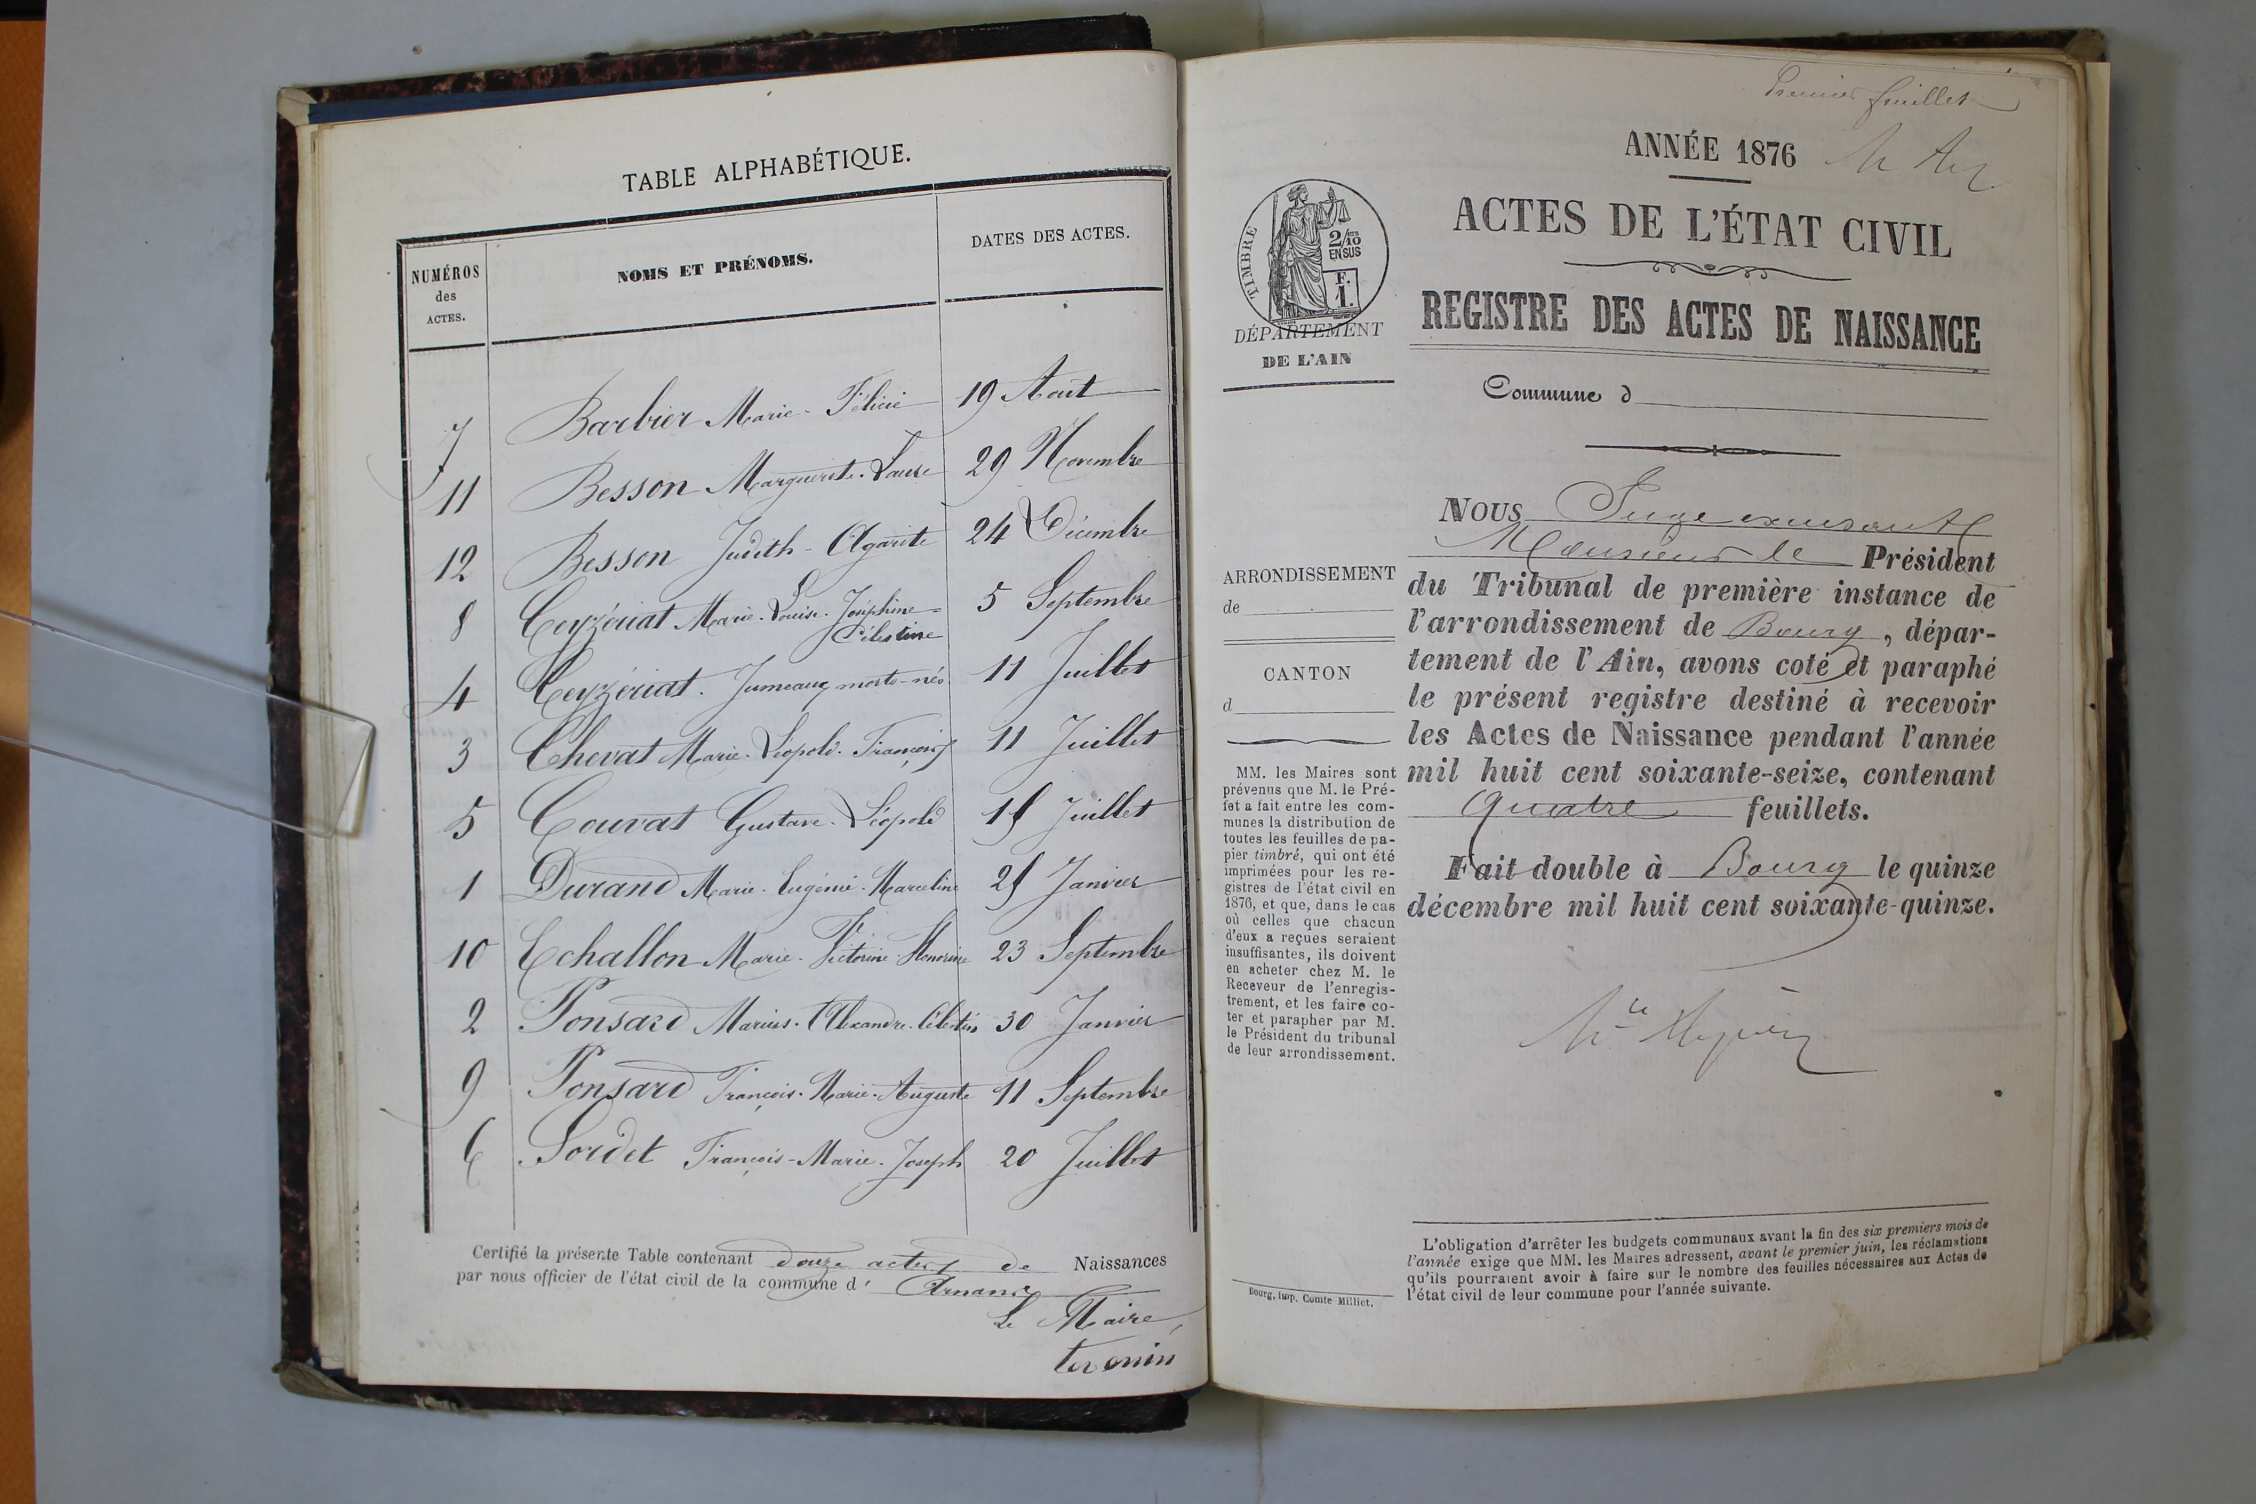 TABLE ALPHABÉTIQUE.
NUMÉROS
des
ACTES.
NOMS ET PRÉNOMS.
DATES DES ACTES.
7 Barbier Marie-Félicie 19 Aout
11 Besson Marguerite-Laure 29 Novembre
12 Besson Judith-Agarite 24 Décembre
8 Ceyzériat Marie-Louise-Joséphine=
Célestine 5 Septembre
4 Ceyzériat. Jumeaux morts-nés 11 Juillet
3 Chevat Marie-Léopold-François 11 Juillet
5 Couvat Gustave-Léopold Juillet
1 Durand Marie-Eugénie-Marceline Janvier
10 Echallon Marie-Victorine-Honorine 23 Septembre
2 Ponsard Marius-Alexandre-Célestin 30 Janvier
9 Ponsard François-Marie-Auguste 11 Septembre
6 Sordet François-Marie-Joseph 20 Juillet
Certifié la présente Table contenant douze actes de Naissances
par nous officier de l'état civil de la commune d' Arnans
Le Maire,
Premier feuillet
ANNÉE 1876
ACTES DE L'ÉTAT CIVIL
REGISTRE DES ACTES DE NAISSANCE
TIMBRE
2/10
EN SUS
F.
1.
DÉPARTEMENT
DE L'AIN
Commune d
NOUS Juge excusant
Monsieur le Président
du Tribunal de première instance de
l'arrondissement de Bourg, dépar-
tement de l'Ain, avons coté et paraphé
le présent registre destiné à recevoir
les Actes de Naissance pendant l'année
mil huit cent soixante-seize, contenant
quatre feuillets.
Fait double à Bourg le quinze
décembre mil huit cent soixante-quinze.
ARRONDISSEMENT
de
CANTON
d
MM. les Maires sont
prévenus que M. le Pré-
fet a fait entre les com-
munes la distribution de
toutes les feuilles de pa-
pier timbré, qui ont été
imprimées pour les re-
gistres de l'état civil en
1876, et que, dans le cas
où celles que chacun
d'eux a reçues seraient
insuffisantes, ils doivent
en acheter chez M. le
Receveur de l'enregis-
trement, et les faire co-
ter et parapher par M.
le Président du tribunal
de leur arrondissement.
L'obligation d'arrêter les budgets communaux avant la fin des six premiers mois de
l'année exige que MM. les Maires adressent, avant le premier juin, les réclamations
qu'ils pourraient avoir à faire sur le nombre des feuilles nécessaires aux Actes de
l'état civil de leur commune pour l'année suivante.
Bourg, imp. Comte Milliet.